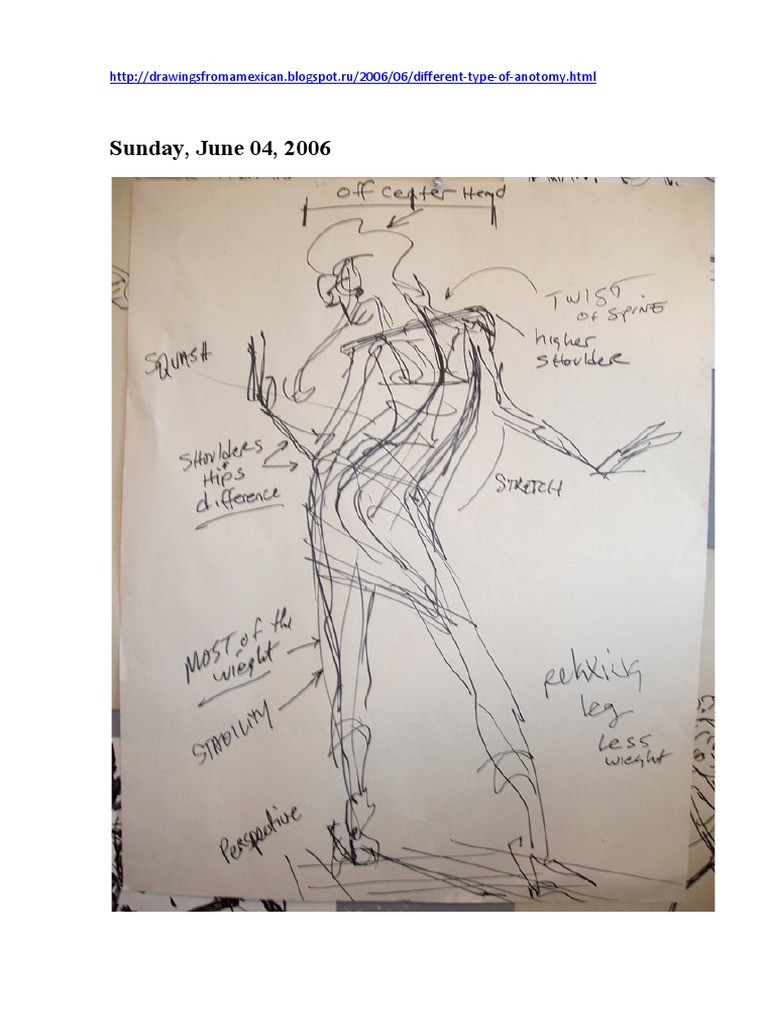 http://drawingsfromamexican.blogspot.ru/2006/06/different-type-of-anotomy.html
Sunday, June 04, 2006
off center Head
TWIST
of SPINE
higher
SHOULDER
SQUASH
SHOULDERS
HIPS
difference
STRETCH
MOST of the
wieght
STABILITY
relaxing
leg
LESS
wieght
Perspective